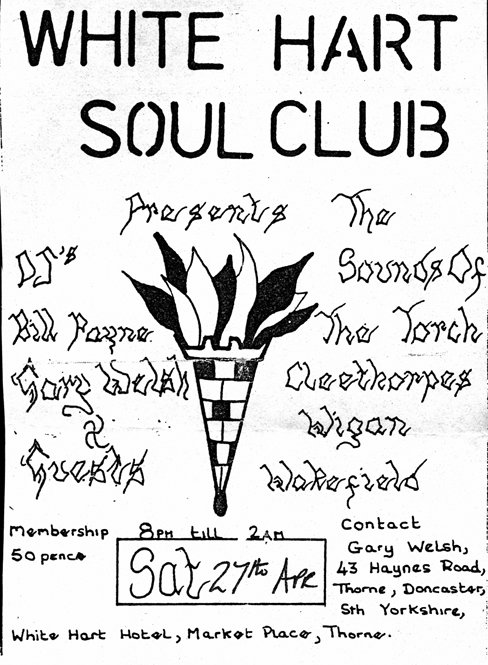 WHITE HART
SOUL CLUB
Presents The
Sounds Of
The Torch
Cleethorpes
Wigan
Wakefield
DJ's
Bill Payne
Gary Welsh
&
Guests
Membership
50 pence
8PM till 2AM
Sat 27th APR
Contact
Gary Welsh,
43 Haynes Road,
Thorne, Doncaster,
Sth Yorkshire,
White Hart Hotel, Market Place, Thorne.